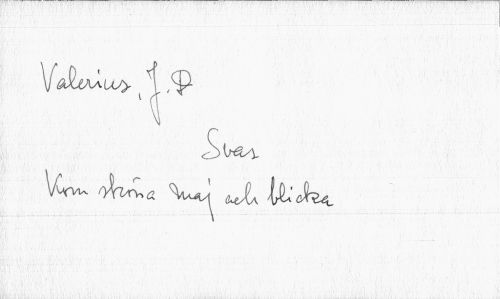 Valerius, J. D
Svas
Kom sköna maj och blicka